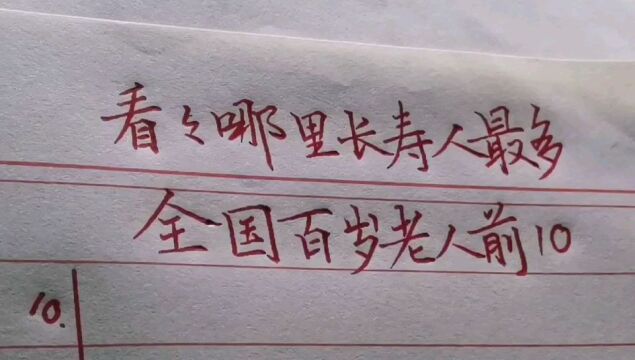 看々哪里长寿人最多
全国百岁老人前10
10.